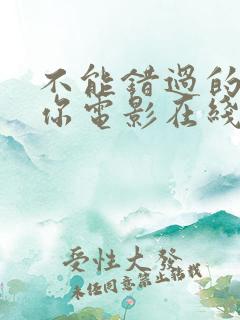 不能错过的
你电影在线
受性大发
未经同意禁止转载